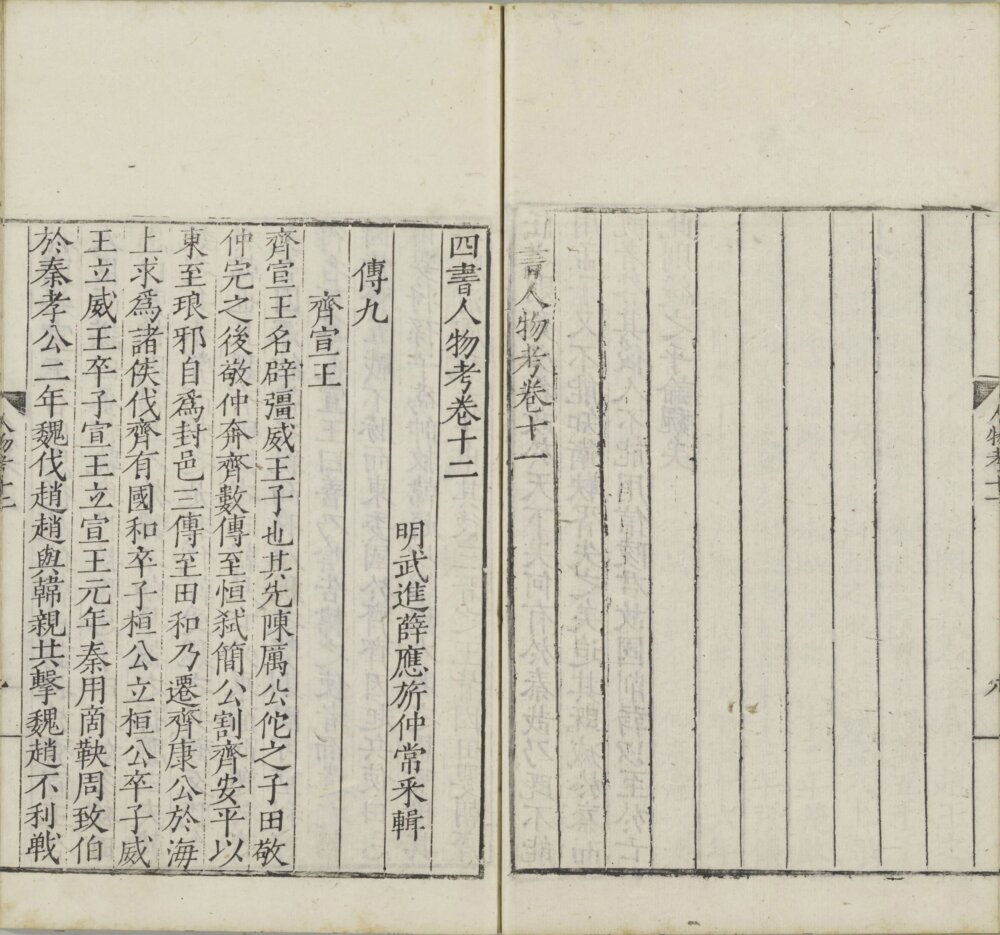 書人物考卷十一
四書人物考卷十二
明武進薛應旂仲常采輯
傳九
齊宣王
齊宣王名辟彊威王子也其先陳厲公佗之子田敬
仲完之後敬仲奔齊數傳至恒弑簡公割齊安平以
東至琅邪自爲封邑三傳至田和乃遷齊康公於海
上求爲諸侯伐齊有國和卒子桓公立桓公卒子威
王立威王卒子宣王立宣王元年秦用商鞅周致伯
於秦孝公二年魏伐趙趙與韓親共擊魏趙不利戰